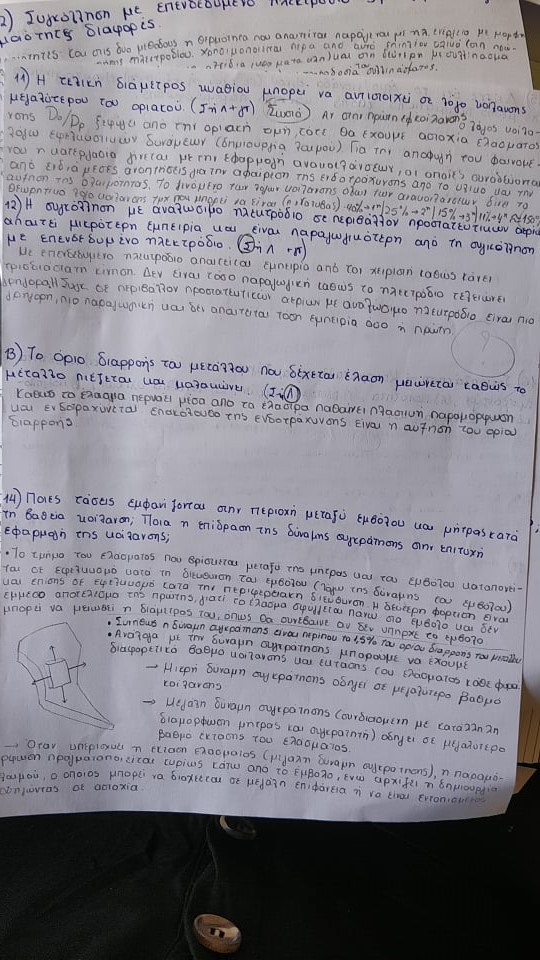 2) Συγκόλληση με επενδεδυμένο ηλεκτρόδιο
μοιότητες διαφορές.
Ομοιότητες: Και στις δυο μεθόδους η θερμότητα που απαιτείται παράγεται με ηλ. ενέργεια με μορφή
11) Η τελική διάμετρος κυαθίου μπορεί να αντιστοιχεί σε λόγο κοίλανσης
μεγαλύτερου του οριακού. (Σ ή Λ + γ) Σωστό Αν στην πρώτη εφ κοίλανσης ο λόγος κοίλα-
νσης Do/Dp ξεφύγει από την οριακή τιμή, τότε θα έχουμε αστοχία ελάσματος
λόγω εφελκυστικών δυνάμεων (δημιουργία λαιμού) Για την αποφυγή του φαινομέ-
νου η κατεργασία γίνεται με την εφαρμογή ανακοιλάνσεων, οι οποίες συνοδεύονται
από ενδιάμεσες ανοπτήσεις για την αφαίρεση της ενδοτράχυνσης από το υλικό και την
αύξηση της ολκιμότητας. Το γινόμενο των λόγων κοίλανσης όλων των ανακοιλάνσεων, δίνει το
θεωρητικό λόγο κοίλανσης των που μπορεί να είναι 40%→1η 25%→2η 15%→3η
12) Η συγκόλληση με αναλώσιμο ηλεκτρόδιο σε περιβάλλον προστατευτικών αερίων
απαιτεί μικρότερη εμπειρία και είναι παραγωγικότερη από τη συγκόλληση
με επενδεδυμένο ηλεκτρόδιο. (Σ ή Λ + γ)
Με επενδεδυμένο ηλεκτρόδιο απαιτείται εμπειρία από τον χειριστή καθώς κάνει
τρισδιάστατη κίνηση. Δεν είναι τόσο παραγωγική καθώς το ηλεκτρόδιο τελειώνει
γρήγορα. Η συγκ. σε περιβάλλον προστατευτικών αερίων με αναλώσιμο ηλεκτρόδιο είναι πιο
γρήγορη, πιο παραγωγική και δεν απαιτείται τόση εμπειρία όσο η πρώτη
13) Το όριο διαρροής του μετάλλου που δέχεται έλαση μειώνεται καθώς το
μέταλλο πιέζεται και μαλακώνει. (Σ ή Λ)
Καθώς το έλασμα περνάει μέσα από το έλαστρο παθαίνει πλαστική παραμόρφωση
και ενδοτραχύνεται επακόλουθο της ενδοτράχυνσης είναι η αύξηση του ορίου
διαρροής
14) Ποιες τάσεις εμφανίζονται στην περιοχή μεταξύ εμβόλου και μήτρας κατά
τη βαθεία κοίλανση; Ποια η επίδραση της δύναμης συγκράτησης στην επιτυχή
εφαρμογή της κοίλανσης;
• Το τμήμα του ελάσματος που βρίσκεται μεταξύ της μήτρας και του εμβόλου καταπονεί-
ται σε εφελκυσμό κατά τη διεύθυνση του εμβόλου (λόγω της δύναμης του εμβόλου)
και επίσης σε εφελκυσμό κατά την περιφερειακή διεύθυνση. Η δεύτερη φόρτιση είναι
έμμεσο αποτέλεσμα της πρώτης, γιατί το έλασμα σφίγγεται πάνω στο έμβολο και δεν
μπορεί να μειωθεί η διάμετρος του, όπως θα συνέβαινε αν δεν υπήρχε το έμβολο
• Συνήθως η δύναμη συγκράτησης είναι περίπου το 1,5% του ορίου διαρροής του μετάλλου
• Ανάλογα με την δύναμη συγκράτησης μπορούμε να έχουμε
διαφορετικό βαθμό κοίλανσης και έκτασης του ελάσματος κάθε φορά.
→ Μικρή δύναμη συγκράτησης οδηγεί σε μεγαλύτερο βαθμό
κοίλανσης
→ Μεγάλη δύναμη συγκράτησης (συνδιασμένη με κατάλληλη
διαμόρφωση μήτρας και συγκρατητή) οδηγεί σε μεγαλύτερο
βαθμό έκτασης του ελάσματος.
→ Όταν υπερισχύει η έκταση ελάσματος (μεγάλη δύναμη συγκράτησης), η παραμό-
ρφωση πραγματοποιείται κυρίως κάτω από το έμβολο, ενώ αρχίζει η δημιουργία
λαιμού, ο οποίος μπορεί να διαχέεται σε μεγάλη επιφάνεια ή να είναι εντοπισμένος
οδηγώντας σε αστοχία.